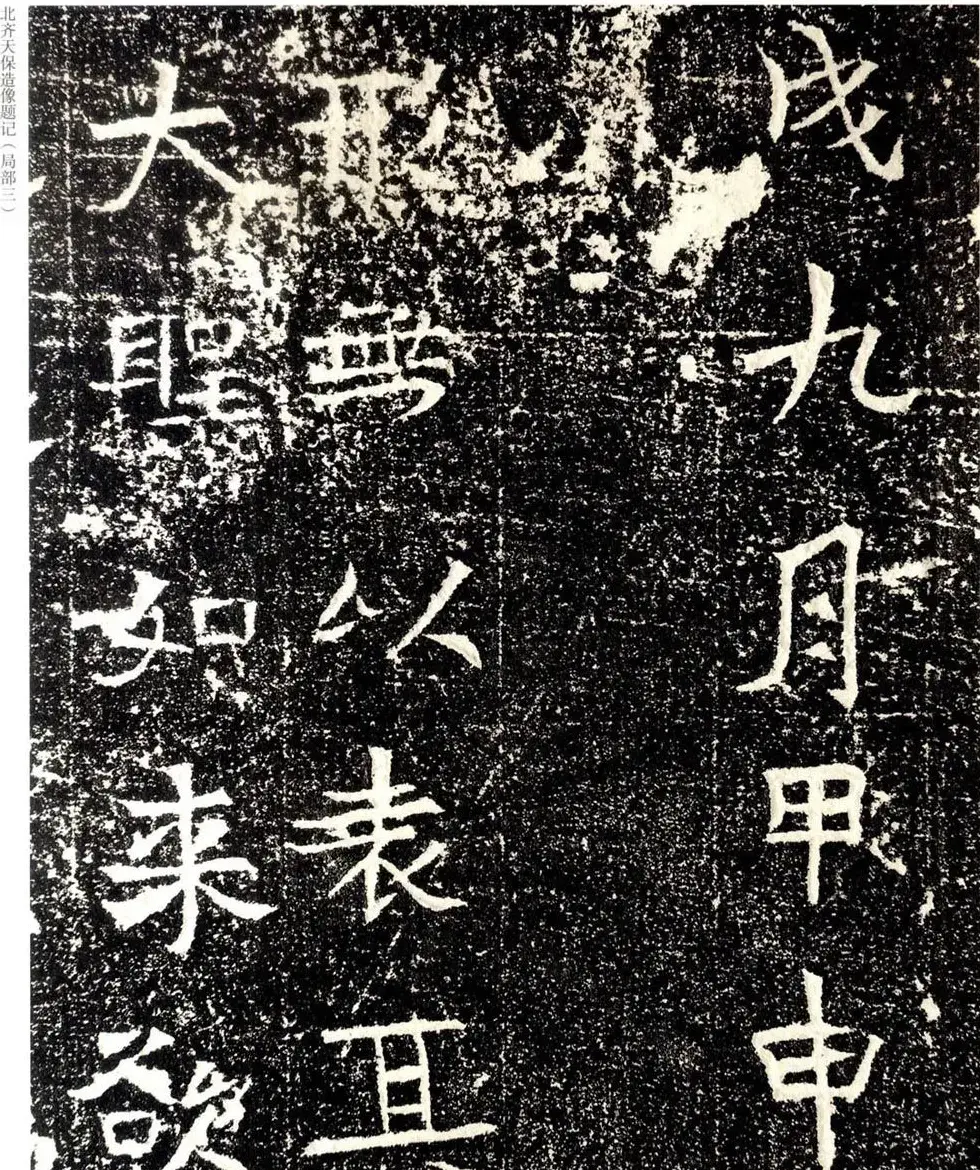 戌九月甲申
無以表其
大聖如来
北齐天保造像题记（局部三）